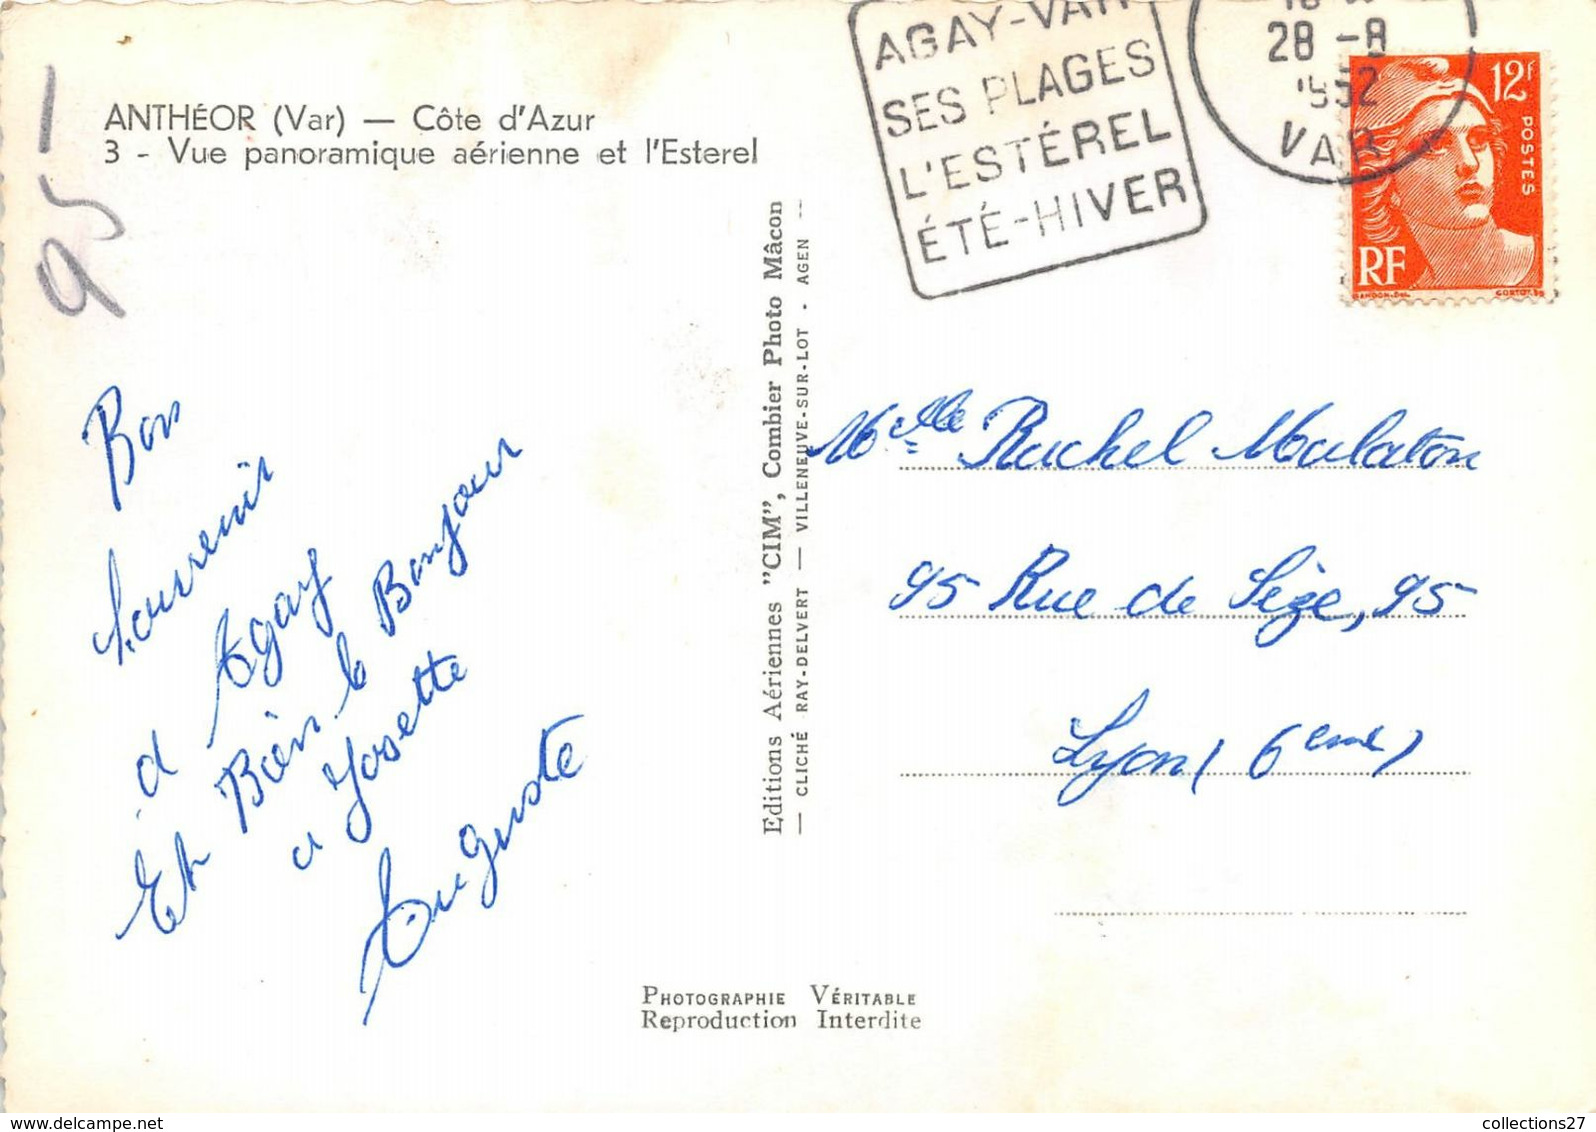 ANTHÉOR (Var) — Côte d'Azur
3 - Vue panoramique aérienne et l'Esterel
95
Bon
Souvenir
d Agay
Et Bien le Bonjour
a Josette
Auguste
Editions Aériennes "CIM", Combier Photo Mâcon
— CLICHÉ RAY-DELVERT — VILLENEUVE-SUR-LOT - AGEN —
AGAY-VAR
SES PLAGES
L'ESTÉREL
ÉTÉ-HIVER
28 -8
1952
VAR
12F
POSTES
RF
GANDON-DEL.
CORTOT.SC
Melle Rachel Malaton
95 Rue de Sèze, 95
Lyon (6eme)
PHOTOGRAPHIE VÉRITABLE
Reproduction Interdite
collections27